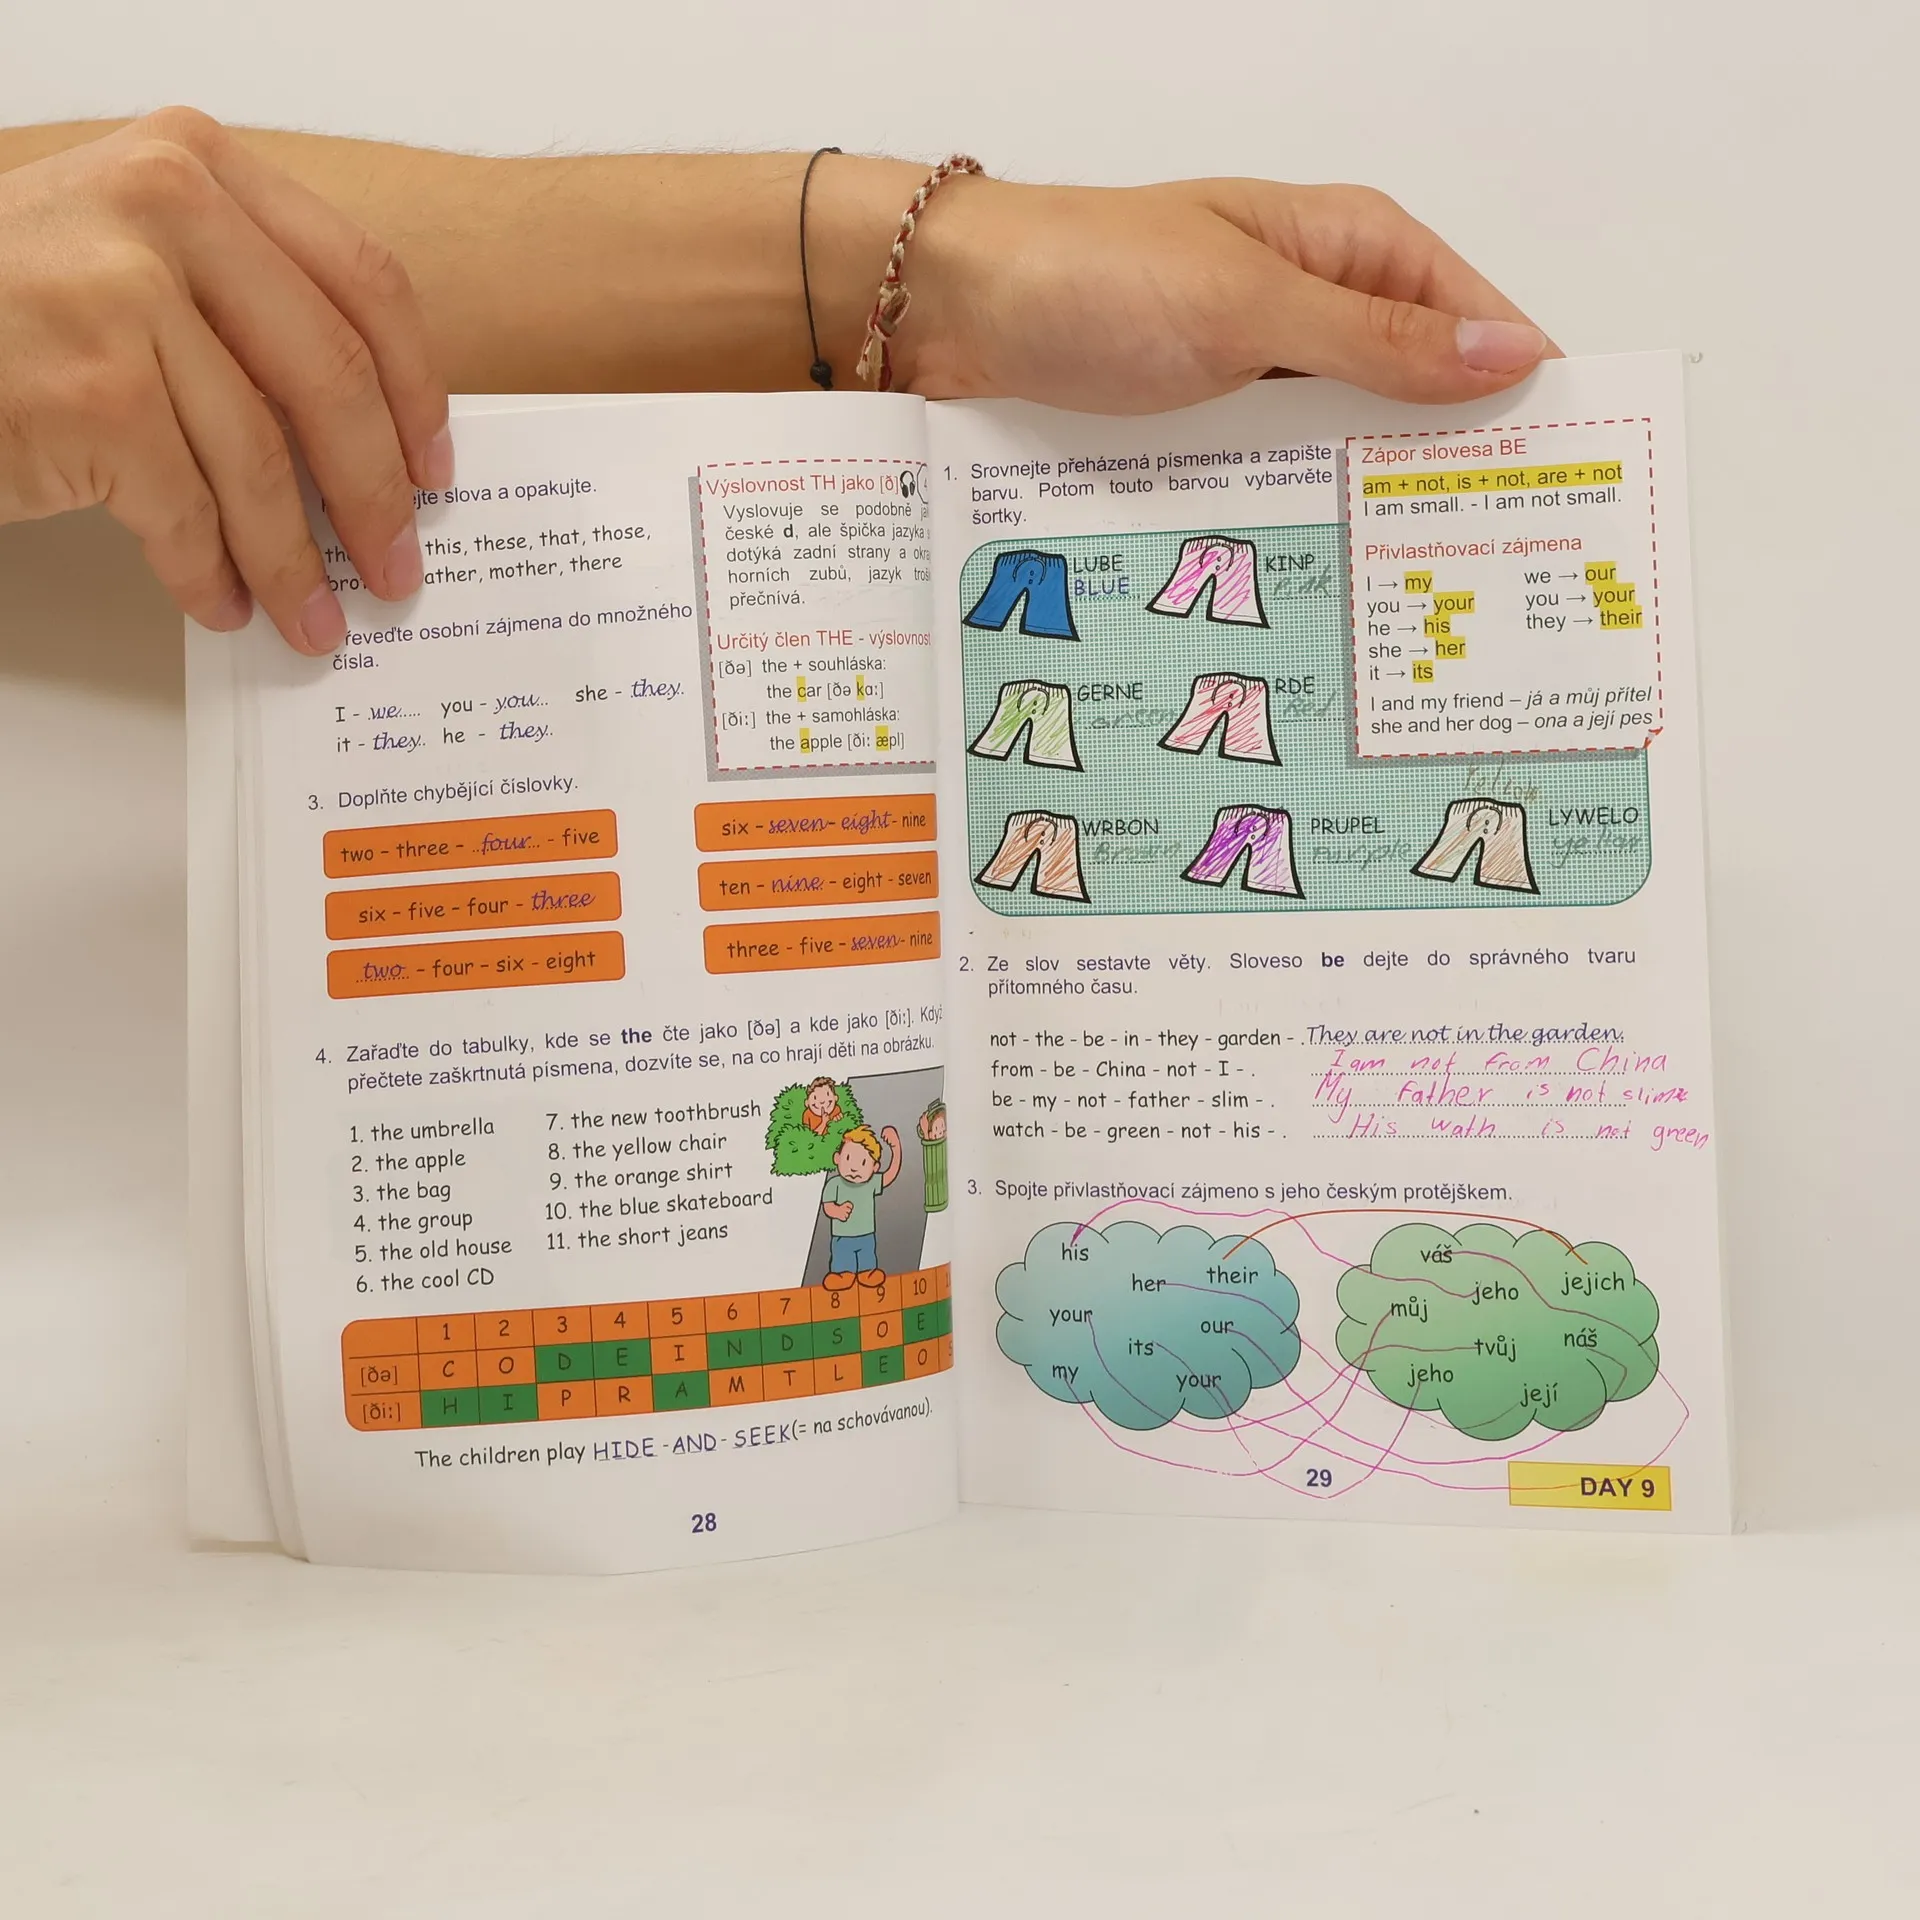 slova a opakujte.
this, these, that, those,
mother, there
osobní zájmena do množného
čísla.
I - we you - you she - they.
it - they. he - they.
3. Doplňte chybějící číslovky.
two - three - four - five
six - five - four - three
two - four - six - eight
six - seven - eight - nine
ten - nine - eight - seven
three - five - seven - nine
Výslovnost TH jako [ð]
Vyslovuje se podobně
české d, ale špička jazyka
dotýká zadní strany a
horních zubů, jazyk
přečnívá.
Určitý člen THE - výslovnost
[ðə] the + souhláska:
the car [ðə kɑ:]
[ði:] the + samohláska:
the apple [ði: æpl]
4. Zařaďte do tabulky, kde se the čte jako [ðə] a kde jako [ði:]. Když
přečtete zaškrtnutá písmena, dozvíte se, na co hrají děti na obrázku.
1. the umbrella
2. the apple
3. the bag
4. the group
5. the old house
6. the cool CD
7. the new toothbrush
8. the yellow chair
9. the orange shirt
10. the blue skateboard
11. the short jeans
1 2 3 4 5 6 7 8 9 10
[ðə] C O D E I N D S O E
[ði:] H I P R A M T L E O
The children play HIDE - AND - SEEK (= na schovávanou).
28
1. Srovnejte přeházená písmenka a zapište
barvu. Potom touto barvou vybarvěte
šortky.
LUBE KINP
BLUE Pink
GERNE RDE
Green Red
Yellow
WRBON PRUPEL LYWELO
Brown Purple
Zápor slovesa BE
am + not, is + not, are + not
I am small. - I am not small.
Přivlastňovací zájmena
I → my we → our
you → your you → your
he → his they → their
she → her
it → its
I and my friend – já a můj přítel
she and her dog – ona a její pes
2. Ze slov sestavte věty. Sloveso be dejte do správného tvaru
přítomného času.
not - the - be - in - they - garden - .They are not in the garden.
from - be - China - not - I - . I am not from China
be - my - not - father - slim - . My father is not slim
watch - be - green - not - his - . His wath is not green
3. Spojte přivlastňovací zájmeno s jeho českým protějškem.
his váš
her their jeho jejich
your můj
our náš
its tvůj
my your jeho
její
29
DAY 9